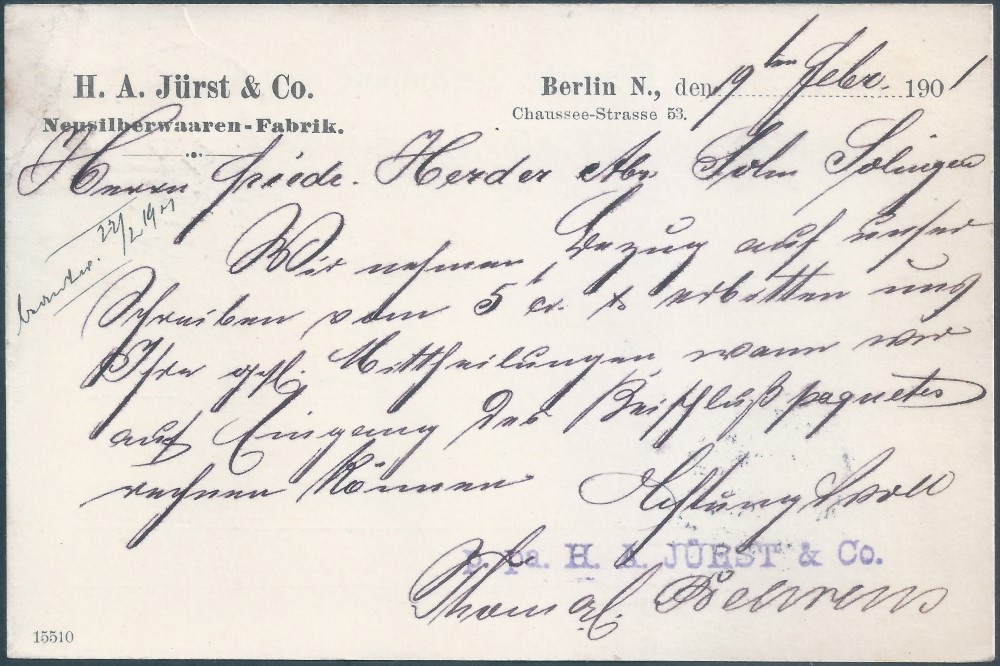 H. A. Jürst & Co.
Neusilberwaaren-Fabrik.
Berlin N., den 19ten Febr. 1901
Chaussee-Strasse 53.
Herrn Friedr. Herder Abr. Sohn Solingen
22/2 1901
Wir nehmen Bezug auf unser
Schreiben vom 5 cr. & erbitten uns
Ihre gefl. Mittheilungen, wann wir
auf Eingang des Beischlußpaquetes
rechnen können
Achtungsvoll
p. pa. H. A. JÜRST & Co.
Behrens
15510